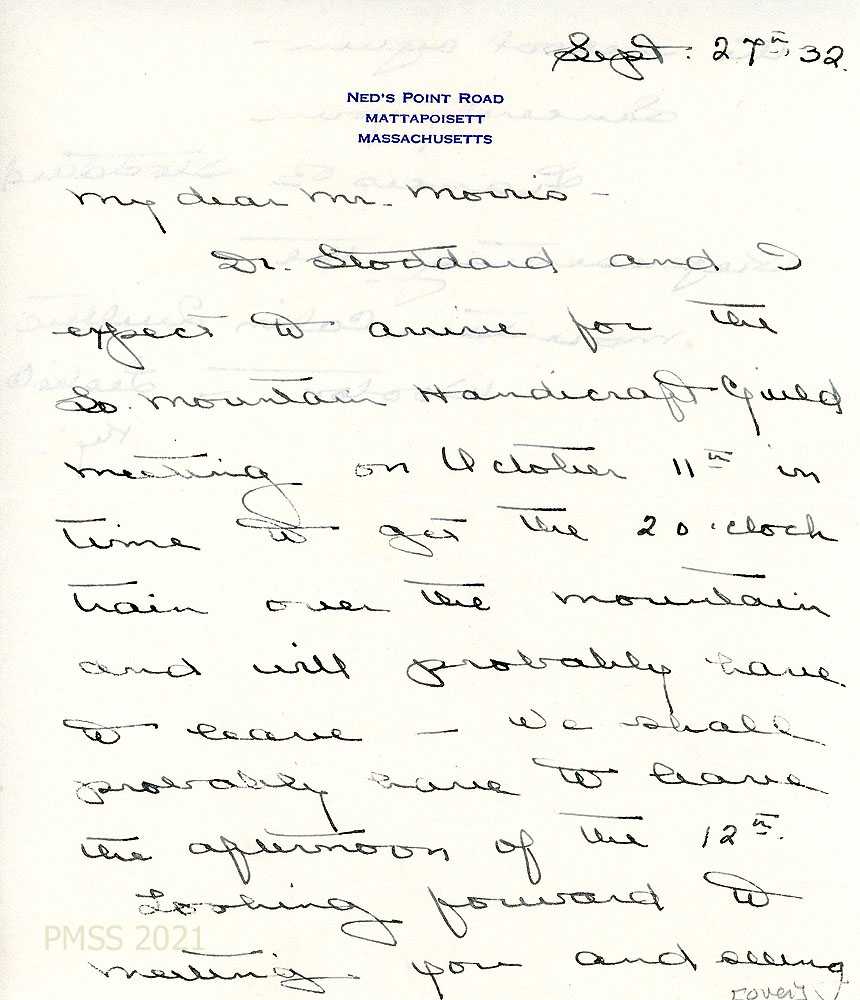 Sept. 27th 32.
NED'S POINT ROAD
MATTAPOISETT
MASSACHUSETTS
My dear Mr. Morris -
Dr. Stoddard and I
expect to arrive for the
So. Mountain Handicraft Guild
meeting on October 11th in
time to get the 2 o'clock
train over the mountain
and will probably have
to leave — We shall
probably have to leave
the afternoon of the 12th.
Looking forward to
meeting you and seeing
(over)
PMSS 2021